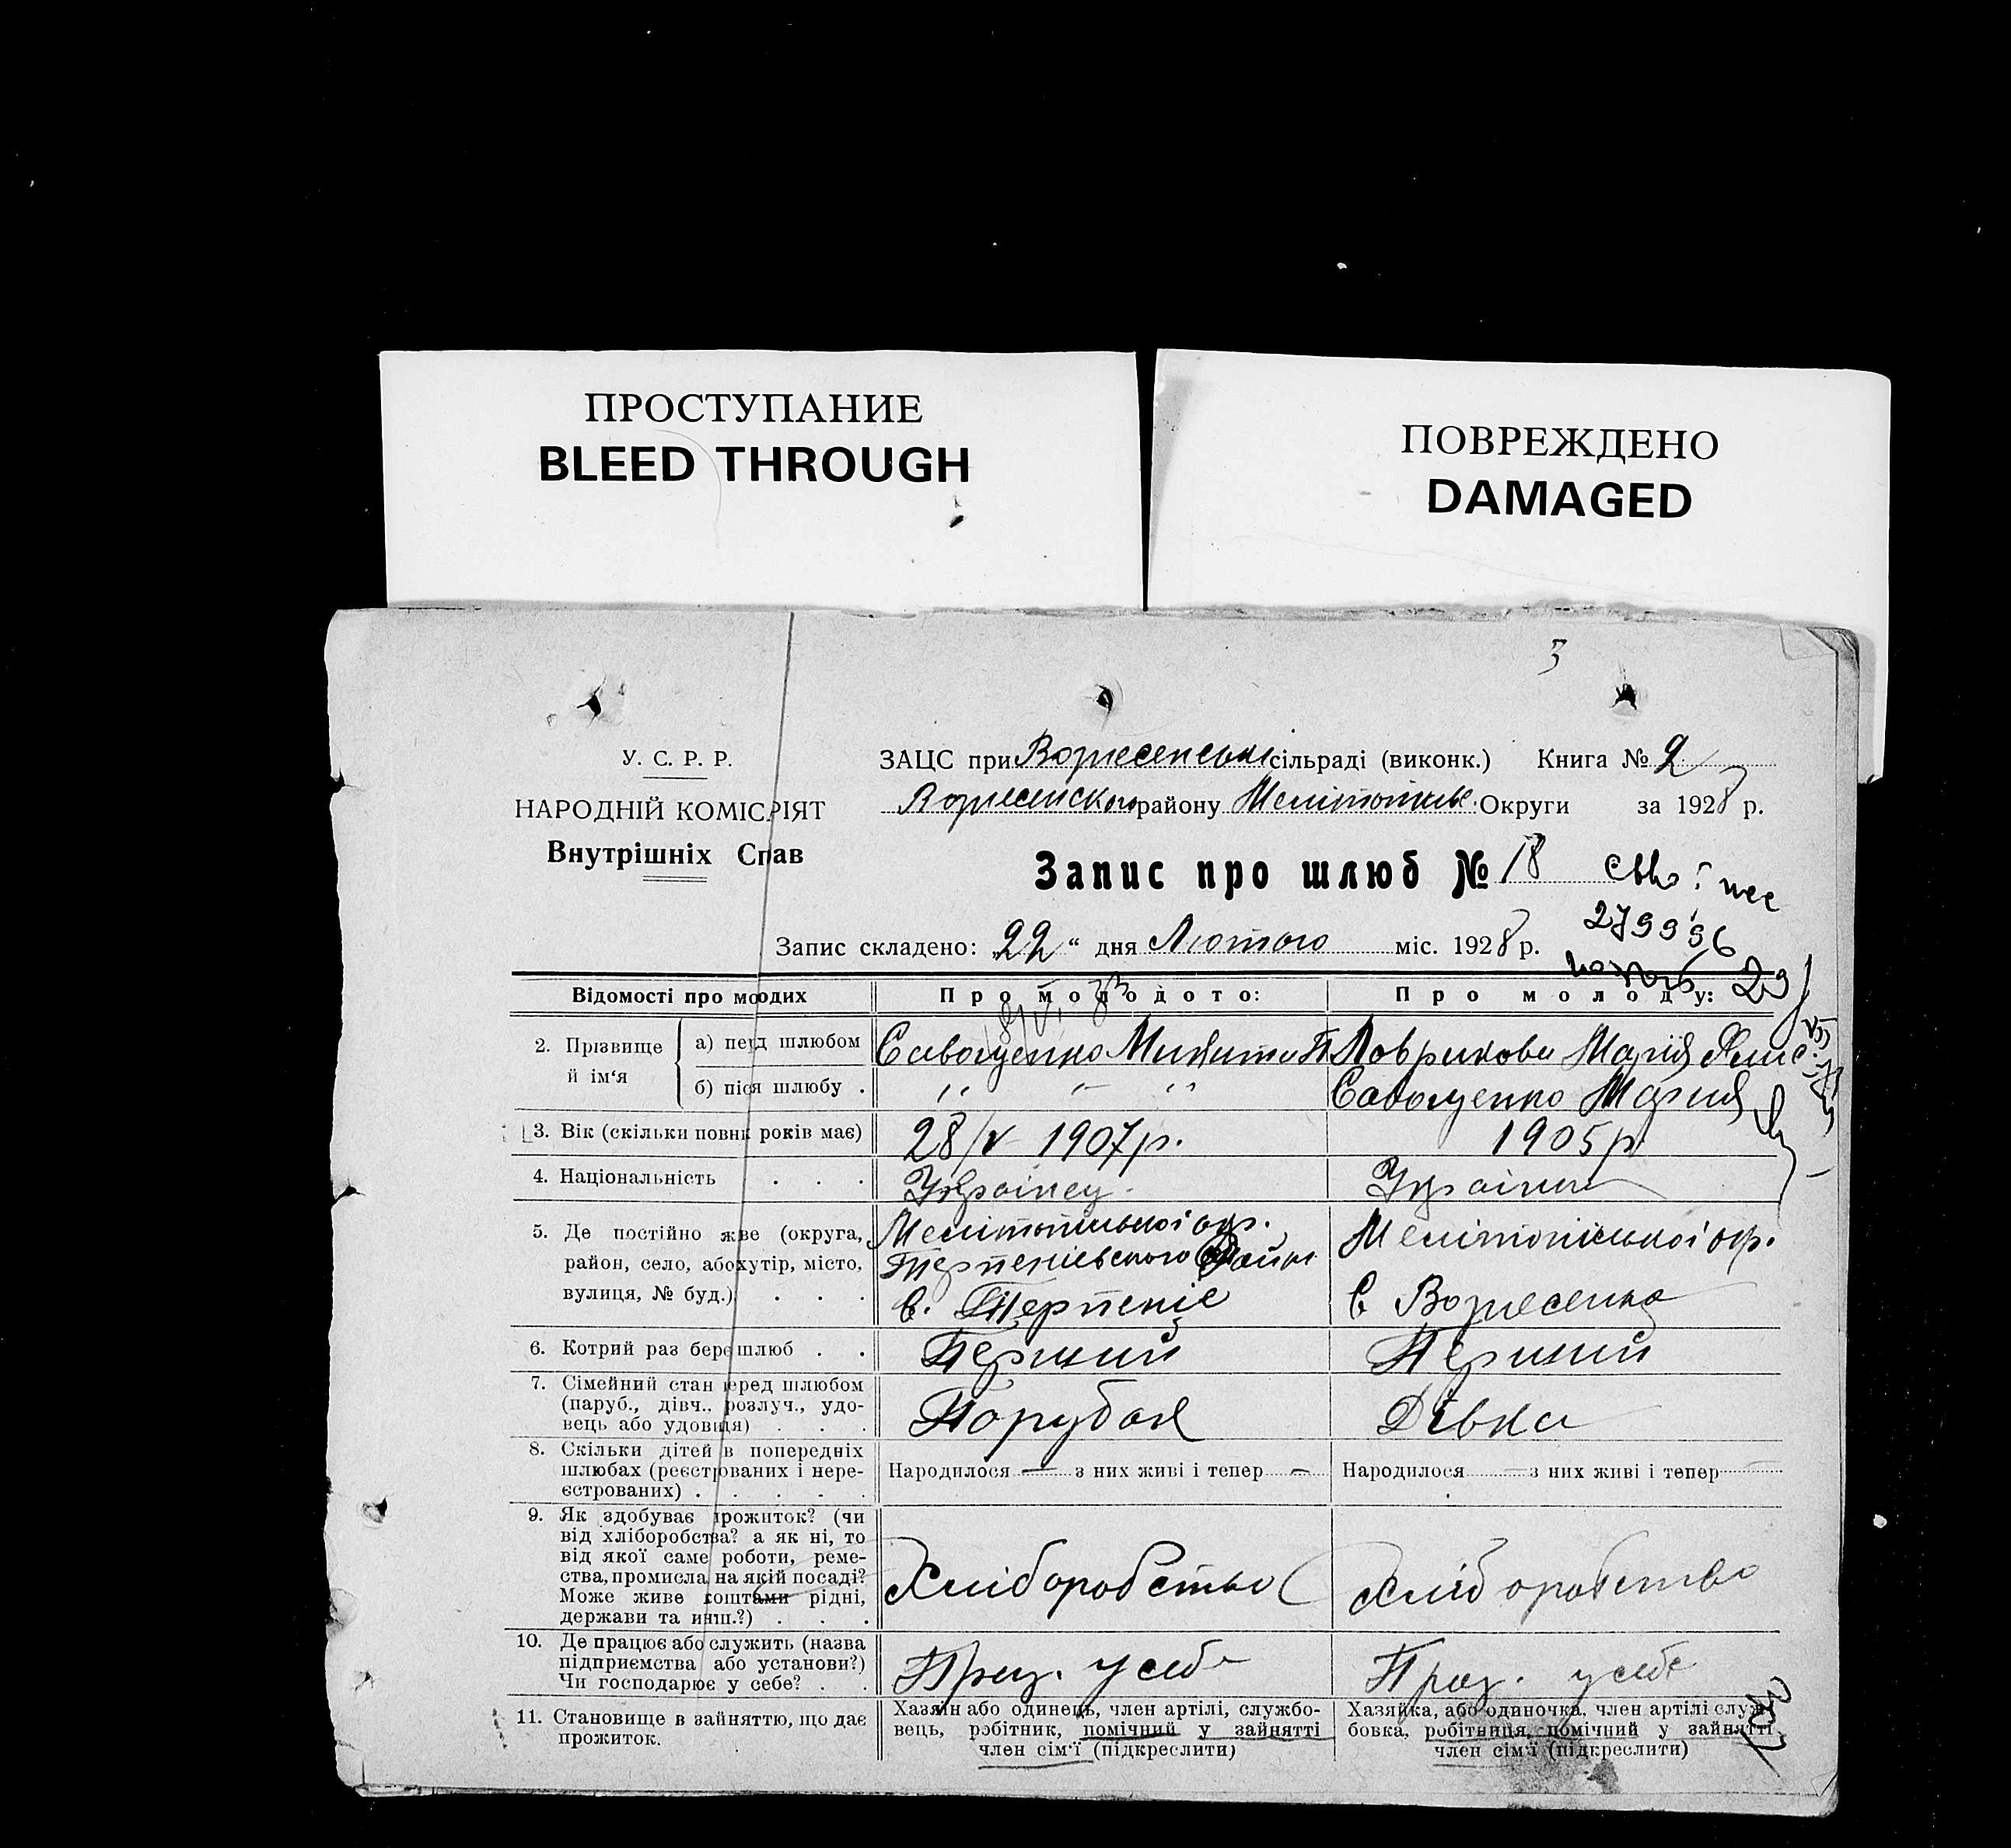 ПРОСТУПАНИЕ
BLEED THROUGH
ПОВРЕЖДЕНО
DAMAGED
3
У. С. Р. Р.
НАРОДНІЙ КОМІСРІЯТ
Внутрішніх Спав
ЗАЦС при Вознесенські сільраді (виконк.) Книга № 2
Вознесенского району Мелітопільс. Округи за 1928 р.
Запис про шлюб № 18
279996
Запис складено: 22 “ дня Лютого міс. 1928 р.
Відомості про моодих
Про молодого:
Про молоду:
2. Прізвище й ім‘я
а) перд шлюбом
Савощенко Микита П
Лаврикова Марія
б) піся шлюбу .
" — "
Савощенко Мария
3. Вік (скільки повни років має)
28/V 1907 р.
1905 р
4. Національність . . .
Українец.
Україн
5. Де постійно жве (округа,
район, село, або хутір, місто,
вулиця, № буд.) . . .
Мелітопільської окр.
Терпеніевского Району
с. Терпеніє
Мелітопільської окр.
с Вознесенка
6. Котрий раз бере шлюб . .
Перший
Перший
7. Сімейний стан перед шлюбом
(паруб., дівч., розлуч., удо-
вець або удовиця) . . .
Порубок
Дівка
8. Скільки дітей в попередніх
шлюбах (реєстрованих і нере-
єстрованих) . . . . .
Народилося — з них живі і тепер —
Народилося — з них живі і тепер —
9. Як здобуває прожиток? (чи
від хліборобства? а як ні, то
від якої саме роботи, реме-
ства, промисла, на якій посаді?
Може живе коштами рідні,
держави та инш.?) . . .
Хліборобство
Хліборобство
10. Де працює або служить (назва
підприємства або установи?)
Чи господарює у себе? . .
Прац. у себе
Прац. у себе
11. Становище в зайняттю, що дає
прожиток.
Хазяїн або одинець, член артілі, службо-
вець, робітник, помічний у зайнятті
член сім‘ї (підкреслити)
Хазяйка, або одиночка, член артілі служ-
бовка, робітниця, помічний у зайнятті
член сім‘ї (підкреслити)